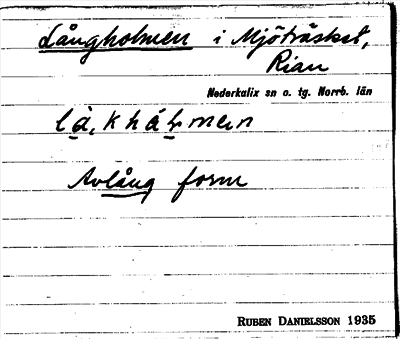 Långholmen i Mjöträsket,
Rian
Nederkalix sn o. tg. Norrb. län
Avlång form
RUBEN DANIELSSON 1935